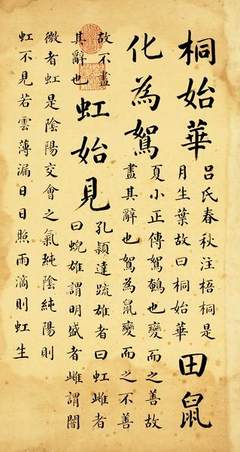 桐始華
呂氏春秋注梧桐是
月生葉故曰桐始華
田鼠
化為鴽
夏小正傳鴽鵪也變而之善故
盡其辭也鴽為鼠變而之不善
故不盡
其辭也
虹始見
孔穎達疏雄者曰虹雌者
曰蜺雄謂明盛者雌謂闇
微者虹是陰陽交會之氣純陰純陽則
虹不見若雲薄漏日日照雨滴則虹生